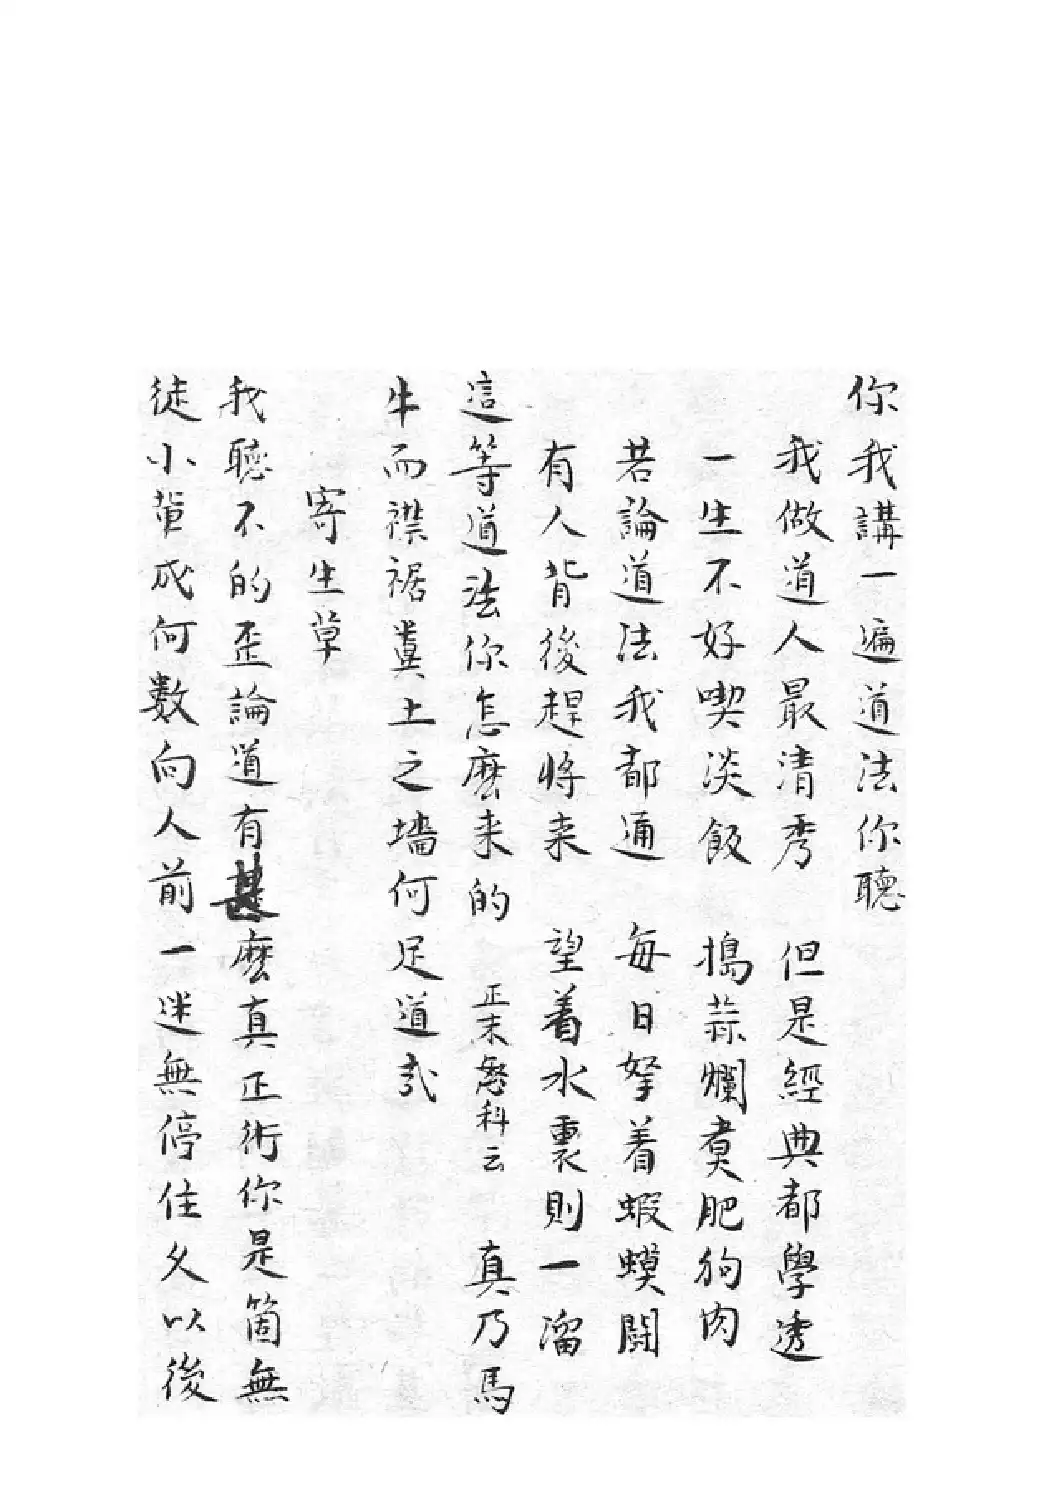 你我講一遍道法你聽
我做道人最清秀　但是經典都學透
一生不好喫淡飯　搗蒜爛煑肥狗肉
若論道法我都通　每日拏着蝦蟆鬪
有人背後趕將来　望着水裏則一溜
這等道法你怎麽来的　正末怒科云　真乃馬
牛而襟裾糞土之墻何足道哉
寄生草
我聽不的歪論道有甚麽真正術你是箇無
徒小輩成何數向人前一迷無停住久以後